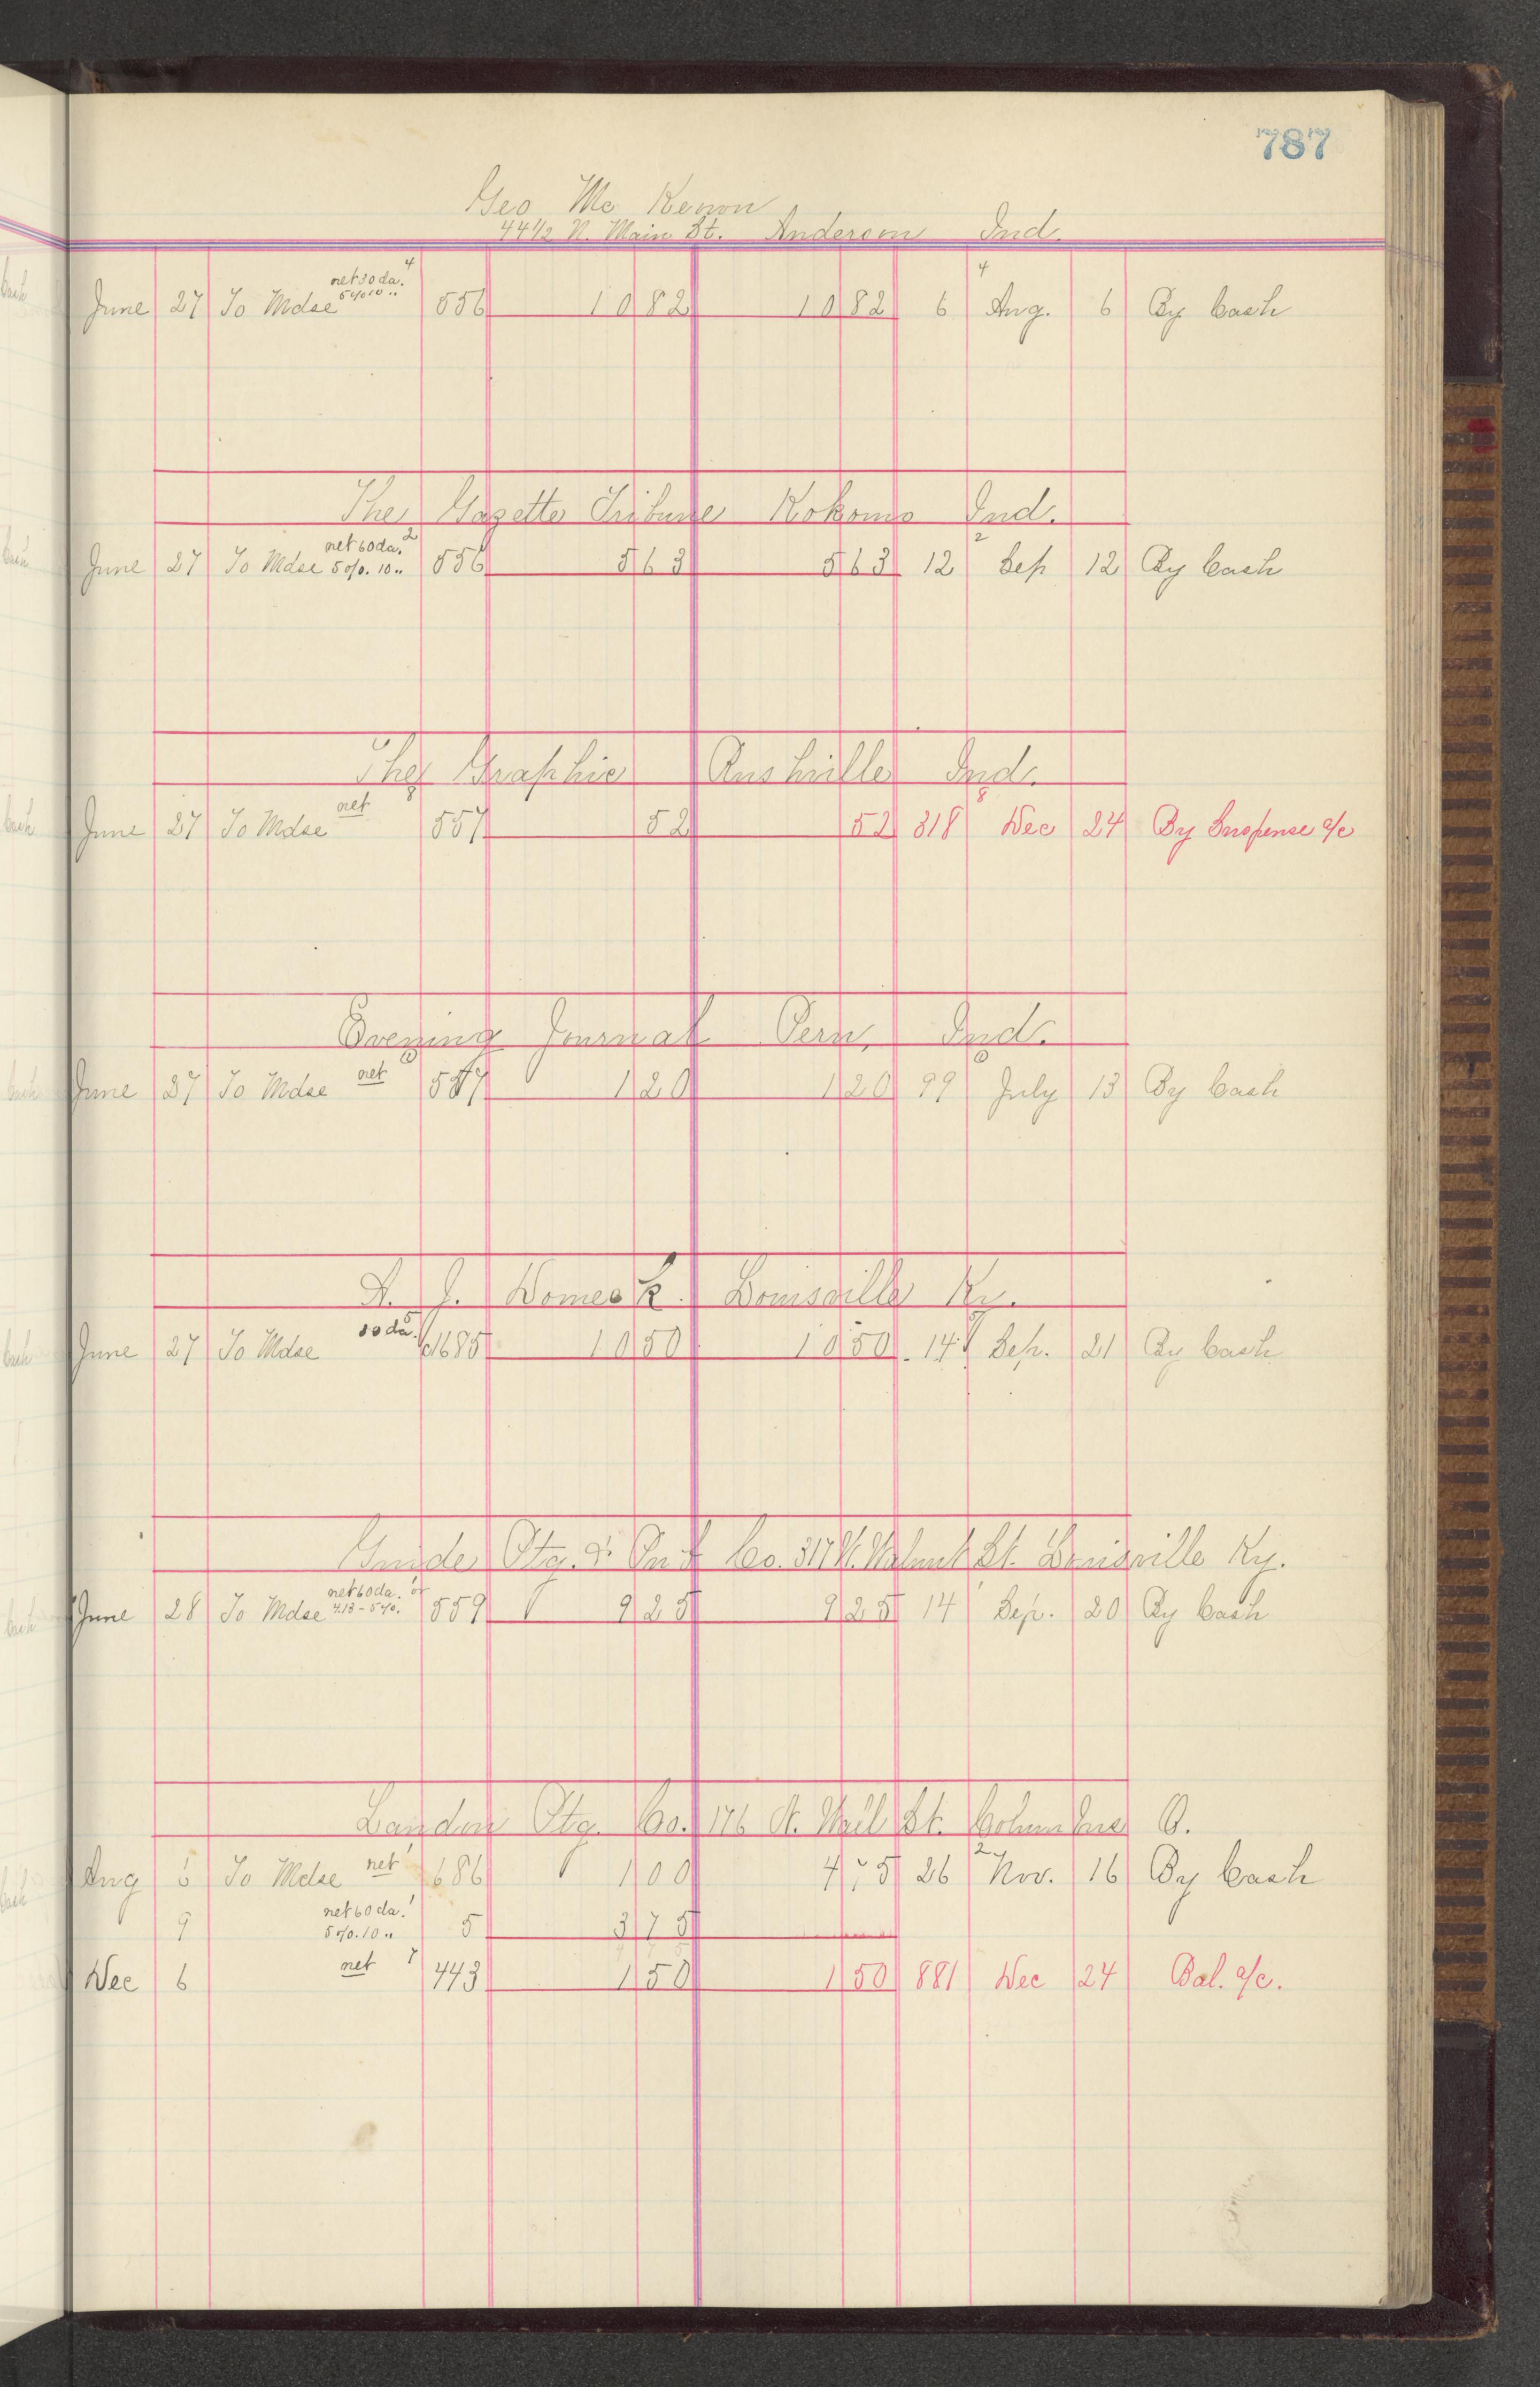 787
Geo Mc Kenon
44 1/2 N. Main St. Anderson Ind.
net 30 da. 4 4
June 27 To Mdse 5% 10 " 556 10 82 10 82 6 Aug. 6 By Cash
The Gazette Tribune Kokomo Ind.
net 60 da. 2 2
June 27 To Mdse 5%. 10 " 556 5 63 5 63 12 Sep 12 By Cash
The Graphic Ind.
net 8 8
June 27 To Mdse 557 52 52 318 Dec 24 By Suspense a/c
Evening Journal Peru, Ind.
net 6 6
June 27 To Mdse 557 1 20 1 20 99 July 13 By Cash
A. J. Louisville Ky.
da. 5
June 27 To Mdse C1685 10 50 10 50 14 Sep. 21 By Cash
Ptg. & Pub Co. 317 W. Walnut St. Louisville Ky.
net 60 da. or
June 28 To Mdse 4.13 - 5%. 559 9 25 9 25 14 Sep. 20 By Cash
Landon Ptg. Co. 176 St. Columbus O.
net 1 2
Aug To Mdse 686 1 00 4 75 26 Nov. 16 By Cash
net 60 da. 1
9 5%. 10 " 5 3 75
net 7
Dec 6 443 1 50 1 50 881 Dec 24 Bal. a/c.